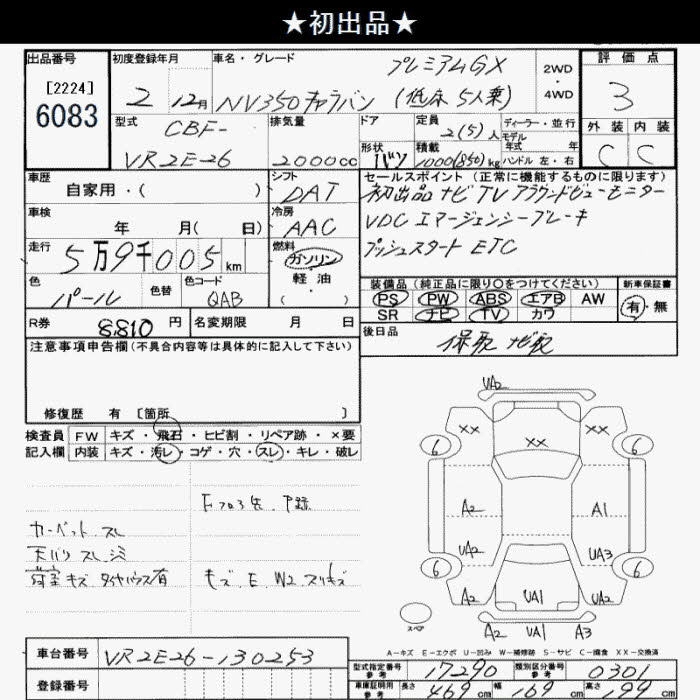 ★初出品★
出品番号
[2224]
6083
初度登録年月
2 12月
車名・グレード
プレミアムGX
NV350キャラバン (低床 5人乗)
2WD
・
4WD
評価点
3
外装 内装
C C
型式
CBF-
VR2E26
排気量
2000cc
ドア
形状
バン
定員
2(5)人
積載
1000(850)kg
ディーラー・並行
モデル
年式 年
ハンドル 左・右
車歴
自家用・( )
シフト
DAT
車検
年 月( 日)
冷房
AAC
走行
5万9千005km
燃料
ガソリン
軽油
・( )
色
パール
色替
色コード
QAB
セールスポイント (正常に機能するものに限ります)
初出品 ナビ TV アラウンドビューモニター
VDC エマージェンシーブレーキ
プッシュスタート ETC
装備品 (純正品に限り○をつけてください)
PS PW ABS エアB AW
SR ナビ TV カワ
新車保証書
有・無
R券
8,810 円
名変期限 月 日
後日品
保取 ナビ取
注意事項申告欄(不具合内容等は具体的に記入して下さい)
修復歴 有 〔箇所 〕
検査員
記入欄
FW キズ・飛石・ヒビ割・リペア跡・×要
内装 キズ・汚レ・コゲ・穴・スレ・キレ・破レ
カーペット スレ
天バリ スレ
荷室 キズ タイヤハウス有
車台番号
VR2E26-130253
登録番号
UA2
XX XX XX
6 6
A2 A1
UA2 UA3
6 6
A2 UA1 A2
スペア
A2 UA1 A3
A-キズ E-エクボ U-凹み W-補修跡 S-サビ C-腐食 XX-交換済
型式指定番号
参考
17290
類別区分番号
参考
0301
車庫証明用
参考
長さ 469cm
幅 169cm
高さ 199cm